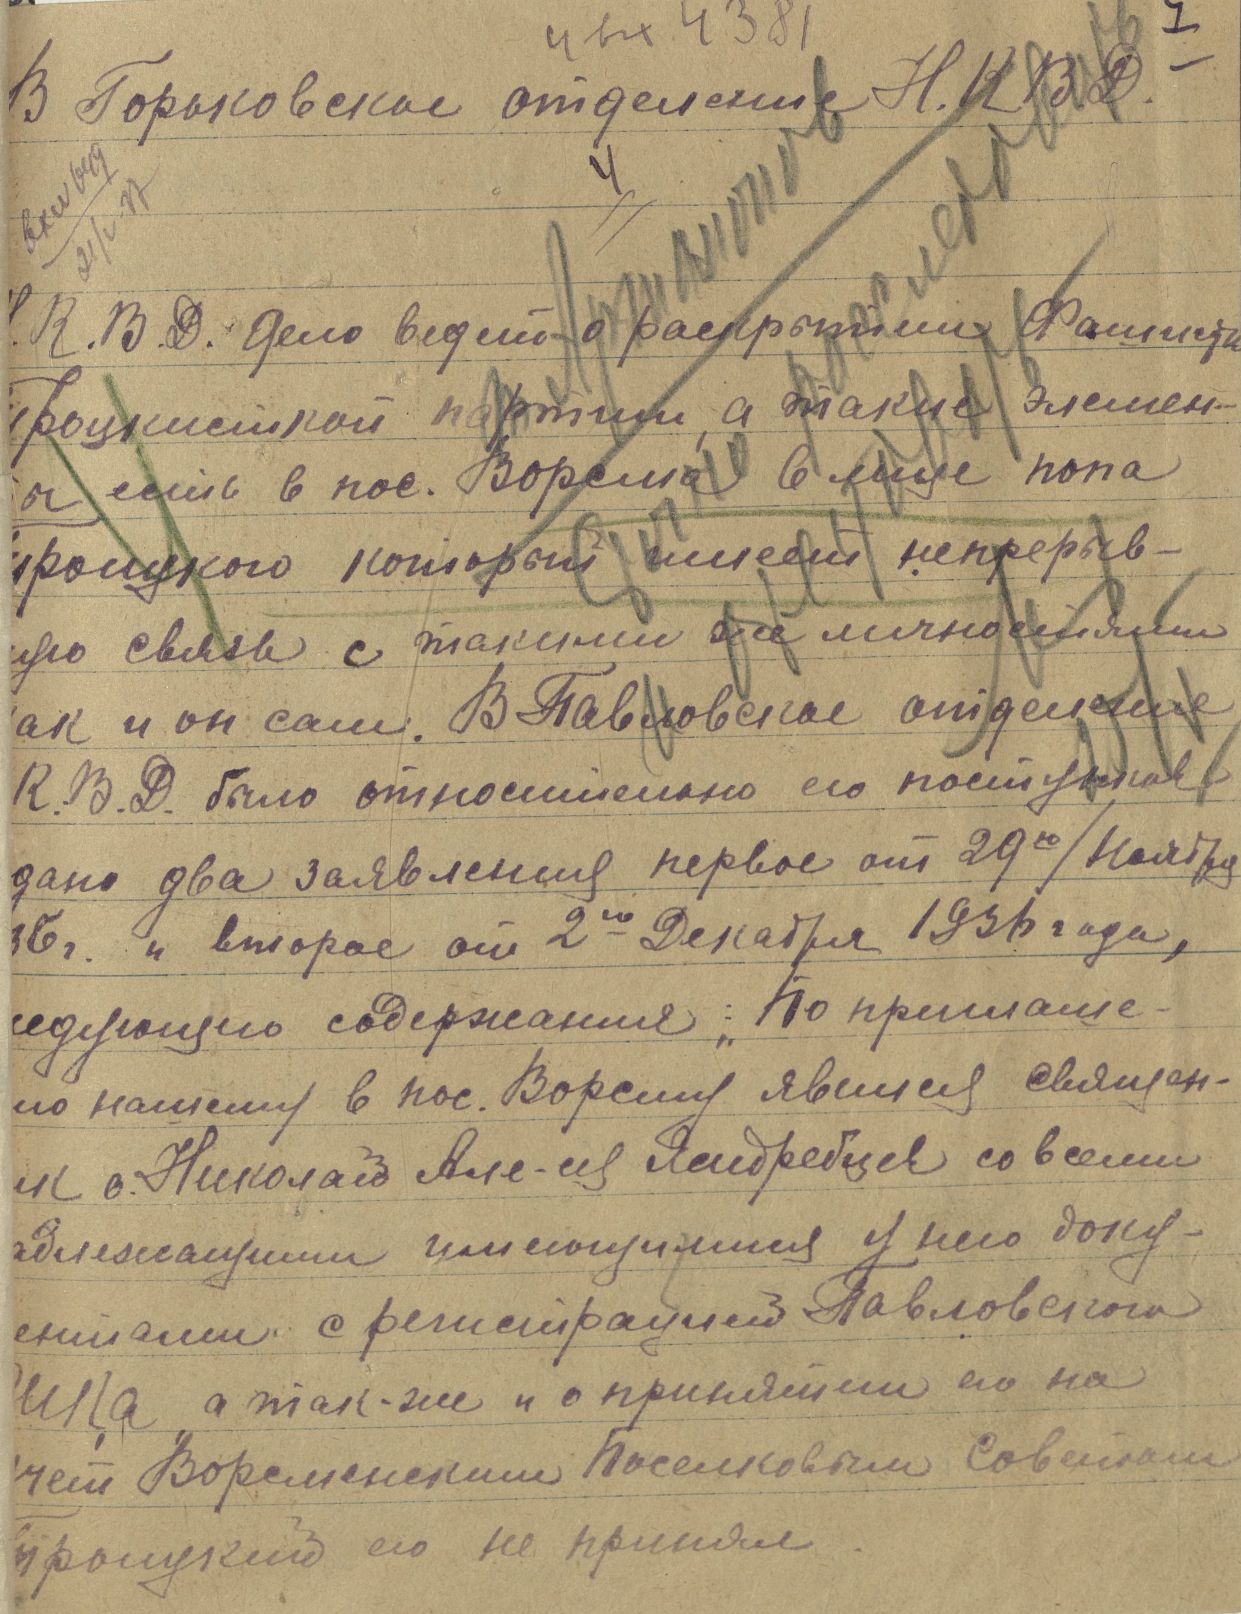 4381
1
В Горьковское отделение Н.К.В.Д.
4
Н.К.В.Д. дело ведет о раскрытии Фашистк
Троцкисткой партии, а такие элемен-
ты есть в пос. Ворсма в лице попа
Троицкого который имеет непрерыв-
ную связь с такими же личностями
как и он сам. В Павловское отделение
К.В.Д. было относительно его поступков
дано два заявления первое от 29го/Ноября
36г. и второе от 2го Декабря 1936 года,
ледующего содержания: „По приглаше-
ию нашему в пос. Ворсму явился священ-
ик о. Николай Але-ея Ястребцев со всеми
адлежащими имеющимися у него доку-
ентами с регистрацией Павловского
РИКа, а так-же и о принятии его на
учет Ворсменским Поселковым Советом
Троицкий его не принял.